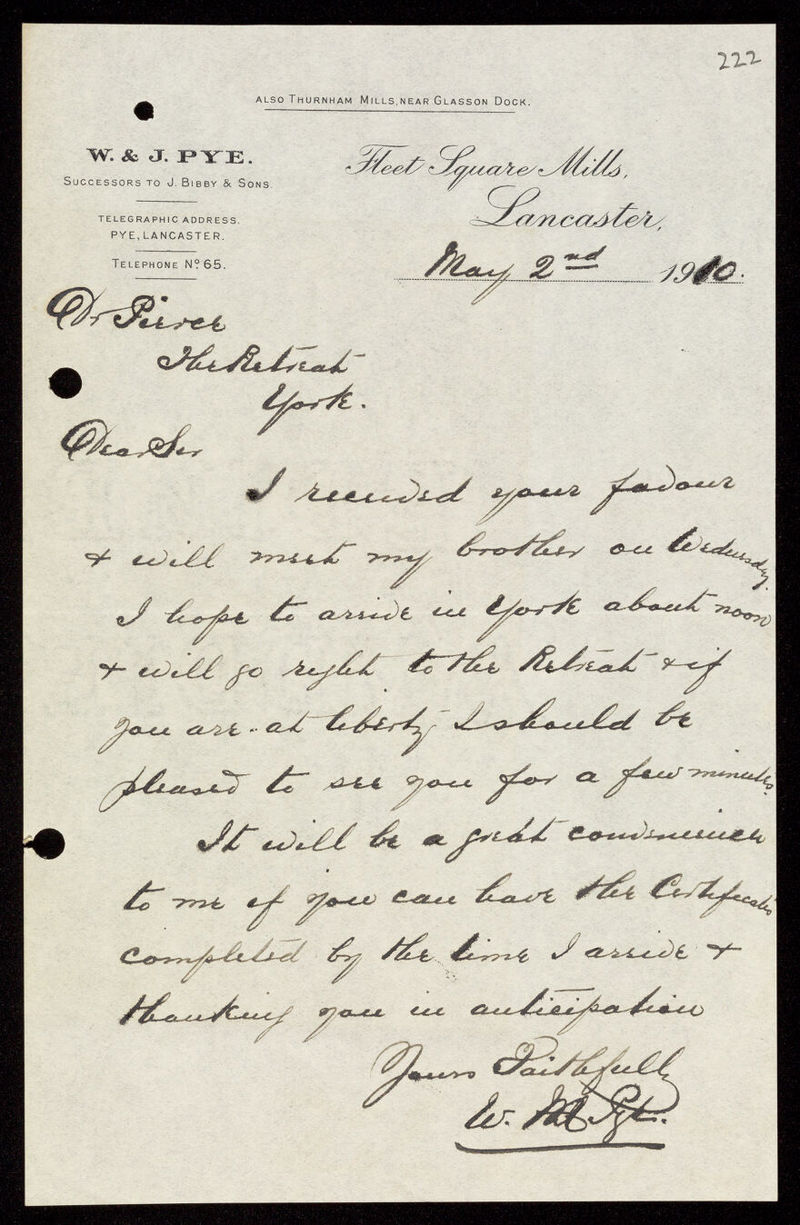 222
ALSO THURNHAM MILLS, NEAR GLASSON DOCK.
W. & J. PYE.
SUCCESSORS TO J. BIBBY & SONS
TELEGRAPHIC ADDRESS.
PYE, LANCASTER.
TELEPHONE No 65.
Fleet Square Mills,
Lancaster,
May 2nd 1910.
Dr Pierce
The Retreat
York.
Dear Sir
I received your favour
& will meet my brother on Wednesday.
I hope to arrive in York about noon
& will go right to the Retreat & if
you are at liberty I should be
pleased to see you for a few minutes.
It will be a great convenience
to me if you can have the Certificates
completed by the time I arrive &
thanking you in anticipation
Yours Faithfully
W. Pye.